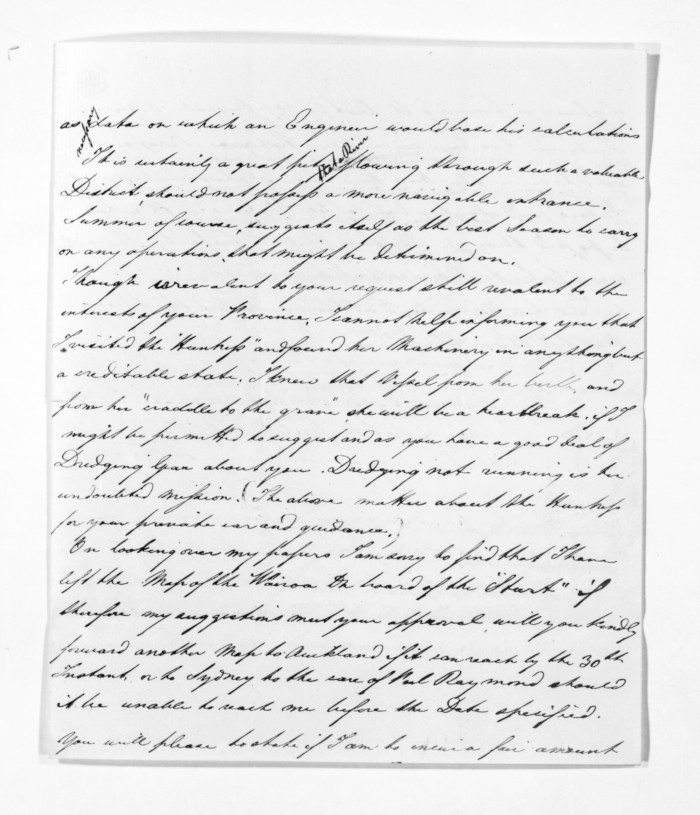 as necessary data on which an Engineer would base his calculations
It is certainly a great pity that a River flowing through such a valuable
District, should not possess a more navigable entrance.
Summer of course, suggests itself as the best Season to carry
on any operations that might be determined on.
Though irrevalent to your request still revalent to the
interests of your Province, I cannot help informing you that
I visited the "Huntress" and found her Machinery in anything but
a creditable state. I knew that Vessel from her birth, and
from her "craddle to the grave" she will be a heartbreak, if I
might be permitted to suggest and as you have a good deal of
Dredging Gear about you. Dredging not running is her
undoubted mission. (The above matter about the Huntress
for your private ear and guidance.)
On looking over my papers I am sorry to find that I have
left the Map of the Wairoa On board of the "Sturt" if
therefore my suggestions meet your approval, will you kindly
forward another Map to Auckland if it can reach by the 30th
Instant, or to Sydney to the care of Raymond should
it be unable to reach me before the Date specified.
You will please to state if I am to incur a fair amount